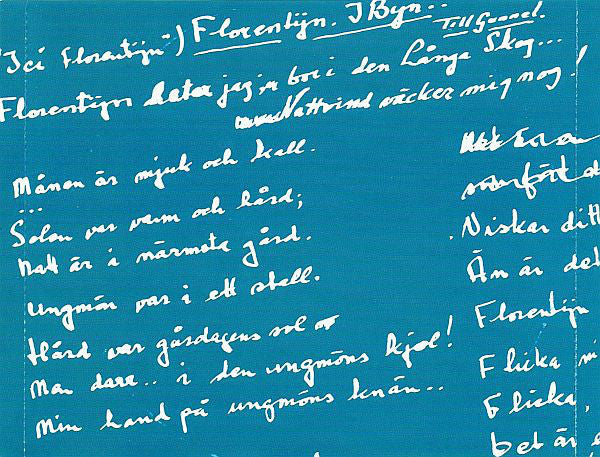 "Ici Florentijn") Florentijn. I Byn..
Till Gunnel.
Florentijn heter jag, bor i den Långa Skog...
Nattvind väcker mig nog!
Månen är mjuk och kall.
...
Solen var varm och hård;
Natt är i närmsta gård.
ungmön var i ett stall.
Hård var gårdagens sol
Man darr.. i den ungmöns kjol!
Min hand på ungmöns knän..
Viskar ditt
Än är det
Florentijn
Flicka mi
Flicka,
Det är